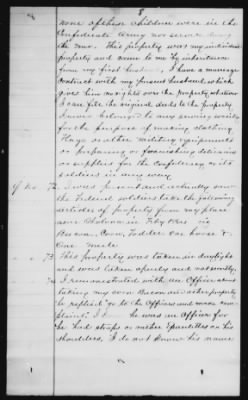 8
none of these children were in the
Confederate Army nor service during
the War. This property was my individual
property and came to me by inheritance
from my first husband, I have a marriage
contract with my present husband which
gives him no rights over the property whatever
I can file the original deeds to the property
I never belonged to any sewing society
for the purpose of making clothing
Flags or other military equipments
or preparing or furnishing delicacies
or supplies for the Confederacy or its
soldiers in any way
72. I was present and actually saw
the Federal soldiers take the following
articles of property from my place
Bacon, Corn, Fodder one horse &
One mule
73 This property was taken in daylight
and was taken openly and not secretly.
74 I remonstrated with an Officer about
taking my corn Bacon and other property
he replied "go to the Officers and make com-
plaint". he was an Officer for
he had straps or rather Epaulettes on his
shoulders, I do not know his name